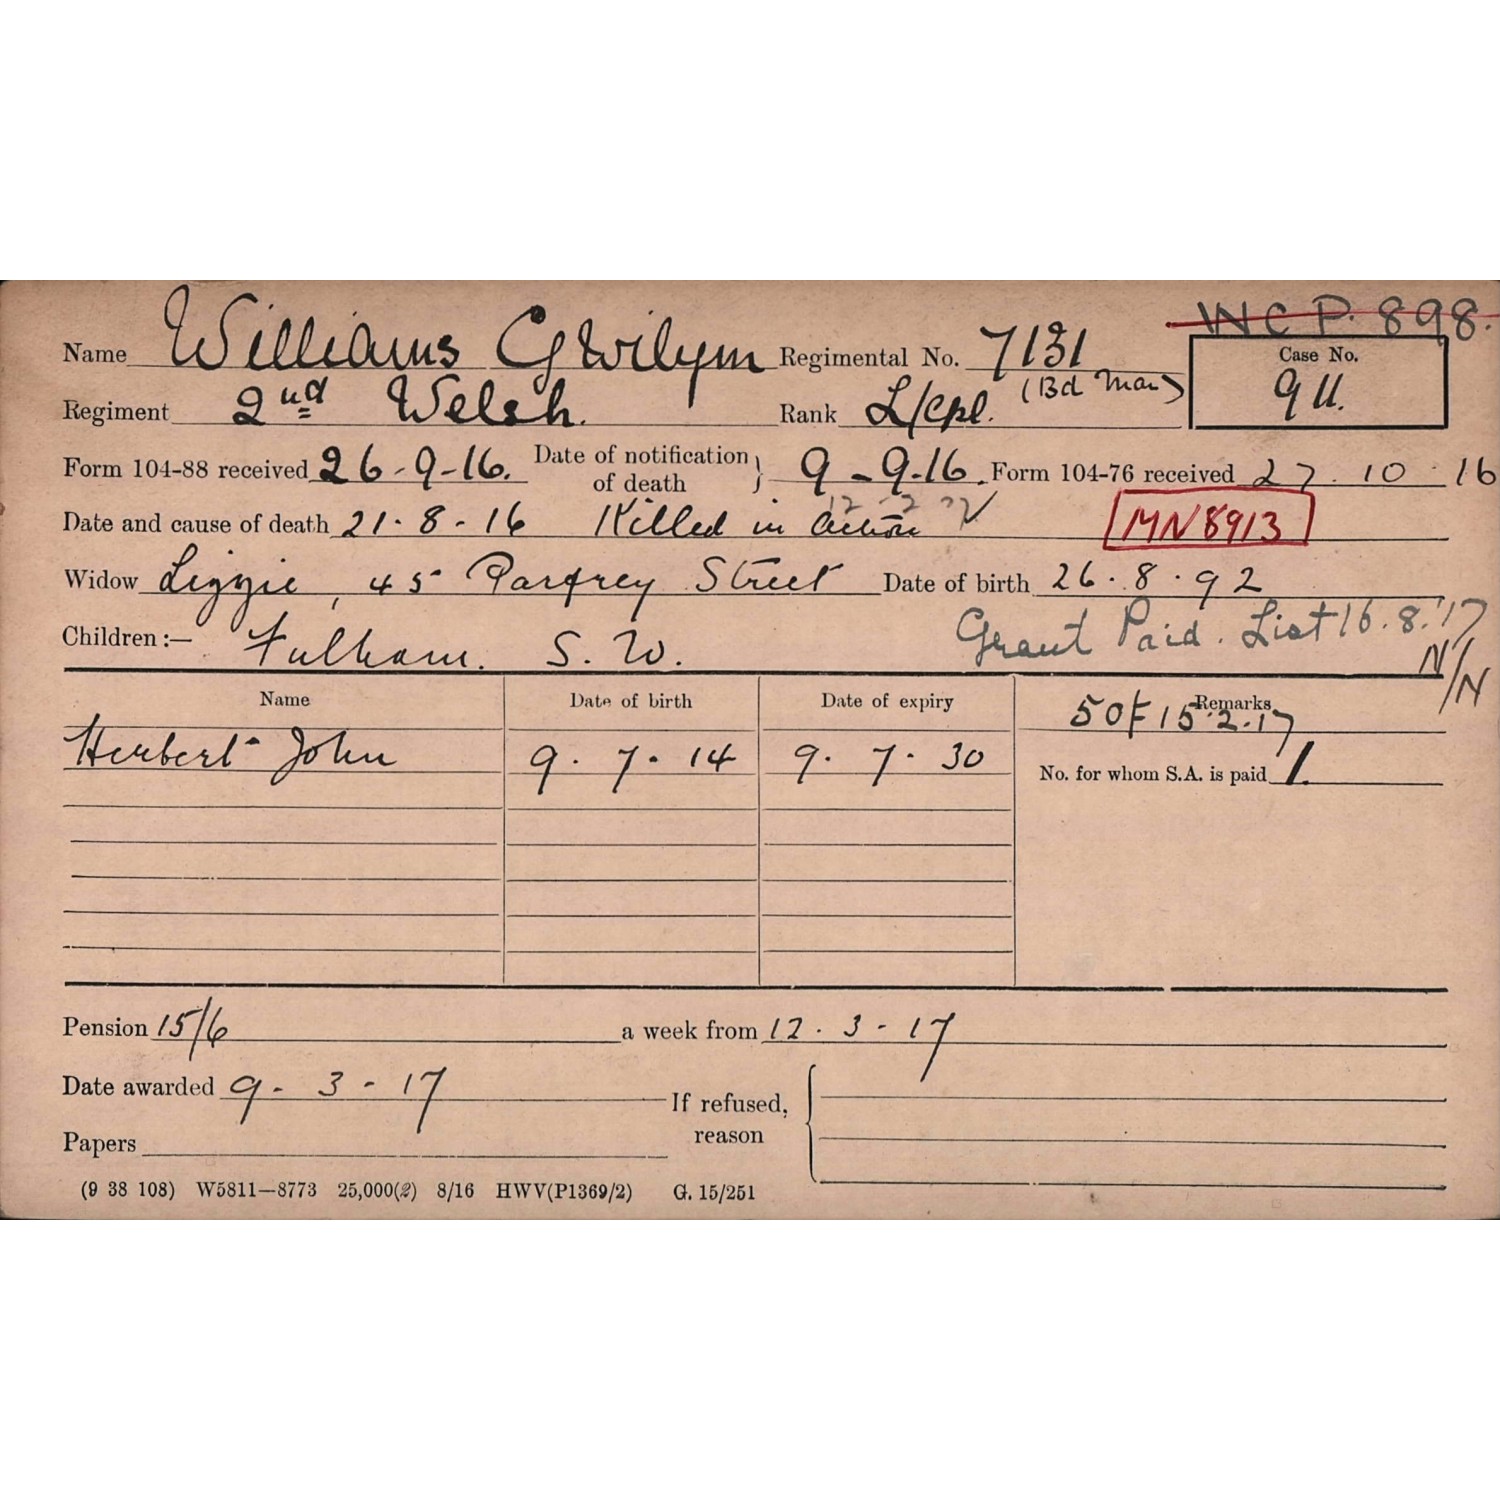 W C P. 898.
Name Williams Gwilym Regimental No. 7131 Case No.
Regiment 2nd Welsh. Rank L/Cpl. (Bd Man) 911.
Form 104-88 received 26-9-16. Date of notification of death } 9-9-16. Form 104-76 received 27.10.16
Date and cause of death 21.8-16 Killed in action MN 8913
Widow Lizzie, 45 Parfrey Street Date of birth 26.8.92
Children :— Fulham. S. W. Grant Paid. List 16.8.'17
N/N
Name Date of birth Date of expiry Remarks
15.2.17
Herbert John 9. 7. 14 9. 7. 30 No. for whom S.A. is paid 1.
Pension 15/6 a week from 12.3-17
Date awarded 9-3-17 If refused, reason
Papers
(9 38 108) W5811—8773 25,000(2) 8/16 HWV(P1369/2) G. 15/251